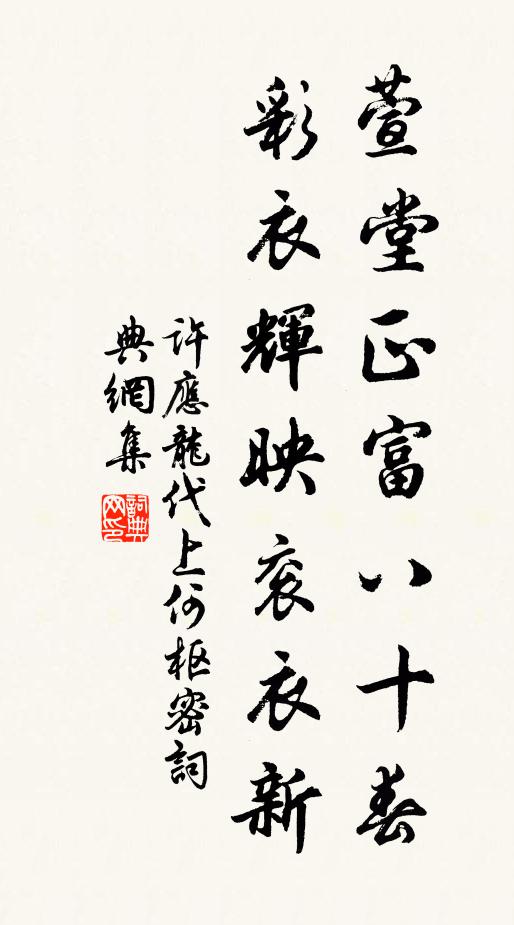 萱堂正富八十春
彩衣輝映衮衣新
許應龍代上何枢密詞
典網集
詞典网印